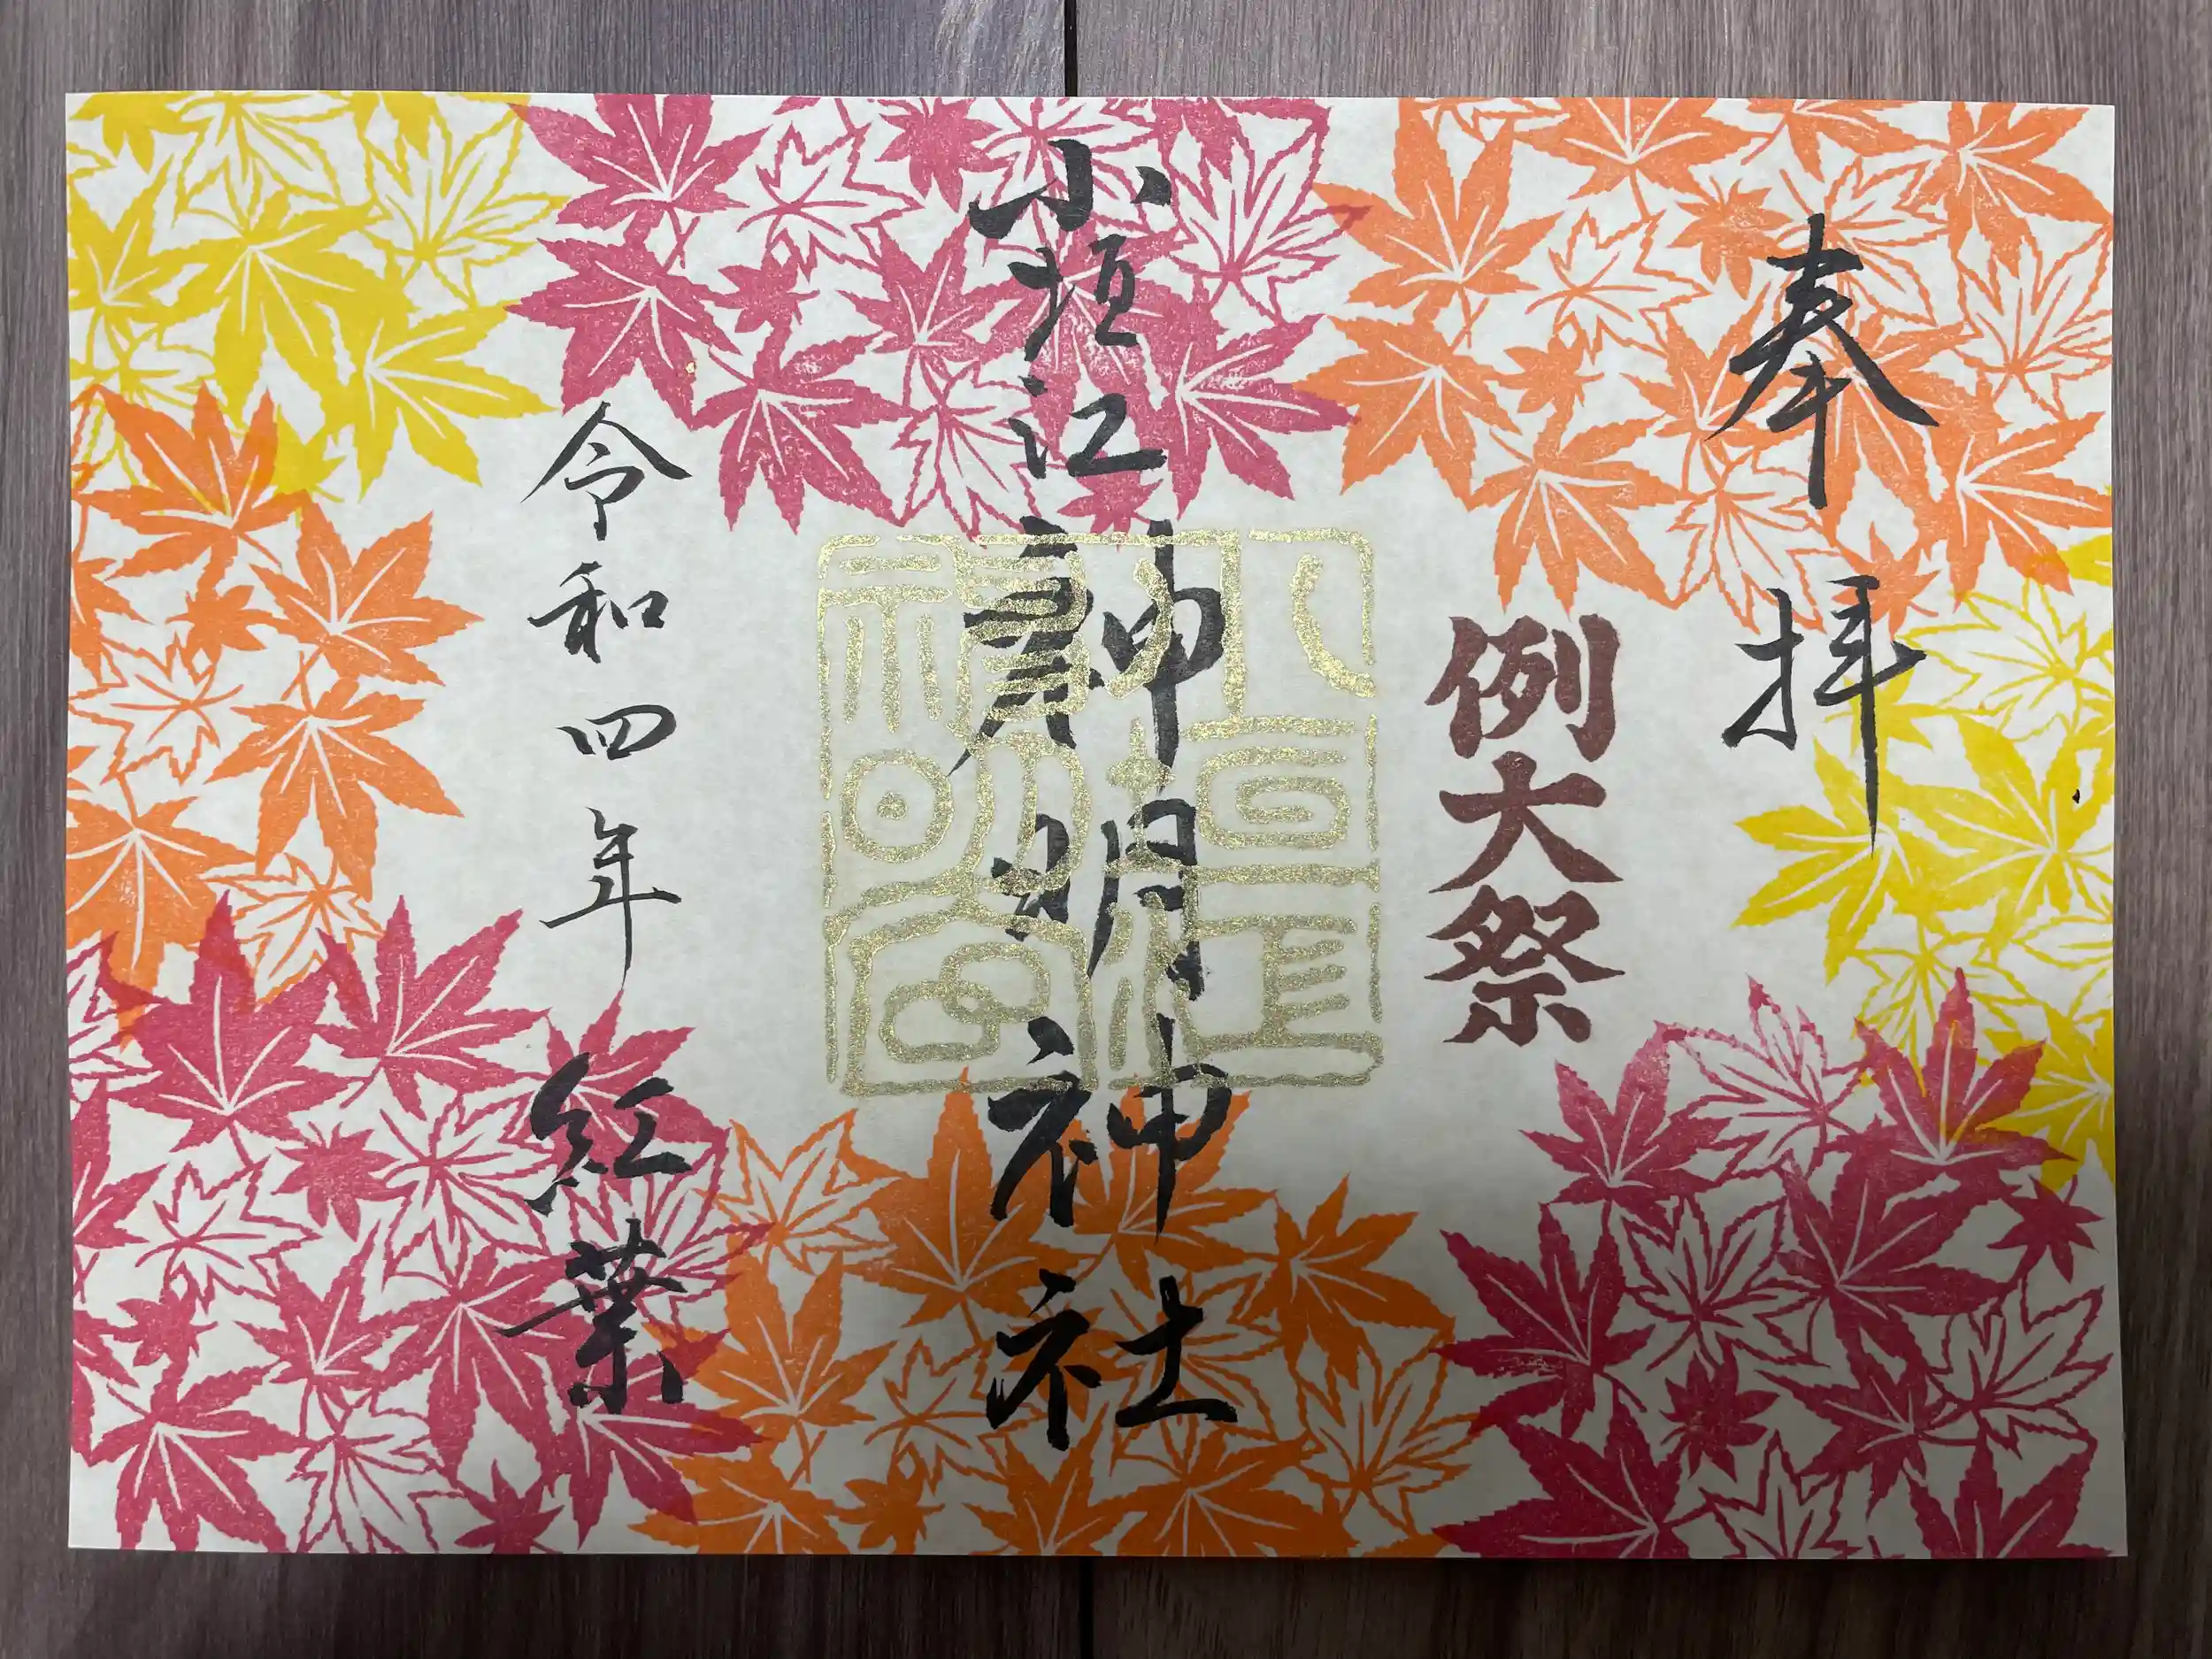 奉拝
例大祭
小垣江神明神社
小垣江
神明宮
令和四年 紅葉